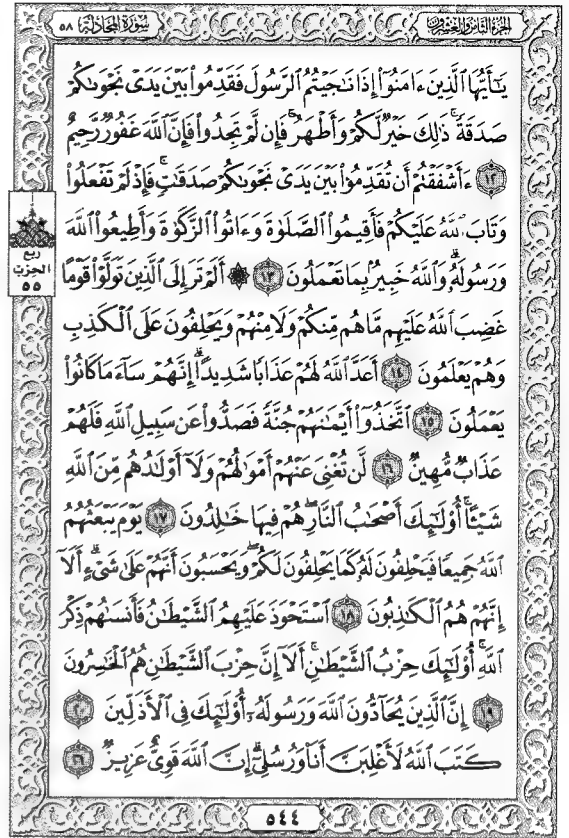 سُورَةُ المُجَادلَةِ ٥٨
الجُزءُ الثَّامِنُ وَالعِشْرُونَ
يَٰٓأَيُّهَا ٱلَّذِينَ ءَامَنُوٓا۟ إِذَا نَٰجَيْتُمُ ٱلرَّسُولَ فَقَدِّمُوا۟ بَيْنَ يَدَىْ نَجْوَىٰكُمْ
صَدَقَةً ۚ ذَٰلِكَ خَيْرٌ لَّكُمْ وَأَطْهَرُ ۚ فَإِن لَّمْ تَجِدُوا۟ فَإِنَّ ٱللَّهَ غَفُورٌ رَّحِيمٌ
١٢ ءَأَشْفَقْتُمْ أَن تُقَدِّمُوا۟ بَيْنَ يَدَىْ نَجْوَىٰكُمْ صَدَقَٰتٍ ۚ فَإِذْ لَمْ تَفْعَلُوا۟
وَتَابَ ٱللَّهُ عَلَيْكُمْ فَأَقِيمُوا۟ ٱلصَّلَوٰةَ وَءَاتُوا۟ ٱلزَّكَوٰةَ وَأَطِيعُوا۟ ٱللَّهَ
وَرَسُولَهُۥ ۚ وَٱللَّهُ خَبِيرٌۢ بِمَا تَعْمَلُونَ ١٣ ۞ أَلَمْ تَرَ إِلَى ٱلَّذِينَ تَوَلَّوْا۟ قَوْمًا
غَضِبَ ٱللَّهُ عَلَيْهِم مَّا هُم مِّنكُمْ وَلَا مِنْهُمْ وَيَحْلِفُونَ عَلَى ٱلْكَذِبِ
وَهُمْ يَعْلَمُونَ ١٤ أَعَدَّ ٱللَّهُ لَهُمْ عَذَابًا شَدِيدًا ۖ إِنَّهُمْ سَآءَ مَا كَانُوا۟
يَعْمَلُونَ ١٥ ٱتَّخَذُوٓا۟ أَيْمَٰنَهُمْ جُنَّةً فَصَدُّوا۟ عَن سَبِيلِ ٱللَّهِ فَلَهُمْ
عَذَابٌ مُّهِينٌ ١٦ لَّن تُغْنِىَ عَنْهُمْ أَمْوَٰلُهُمْ وَلَآ أَوْلَٰدُهُم مِّنَ ٱللَّهِ
شَيْـًٔا ۚ أُو۟لَٰٓئِكَ أَصْحَٰبُ ٱلنَّارِ ۖ هُمْ فِيهَا خَٰلِدُونَ ١٧ يَوْمَ يَبْعَثُهُمُ
ٱللَّهُ جَمِيعًا فَيَحْلِفُونَ لَهُۥ كَمَا يَحْلِفُونَ لَكُمْ ۖ وَيَحْسَبُونَ أَنَّهُمْ عَلَىٰ شَىْءٍ ۚ أَلَآ
إِنَّهُمْ هُمُ ٱلْكَٰذِبُونَ ١٨ ٱسْتَحْوَذَ عَلَيْهِمُ ٱلشَّيْطَٰنُ فَأَنسَىٰهُمْ ذِكْرَ
ٱللَّهِ ۚ أُو۟لَٰٓئِكَ حِزْبُ ٱلشَّيْطَٰنِ ۚ أَلَآ إِنَّ حِزْبَ ٱلشَّيْطَٰنِ هُمُ ٱلْخَٰسِرُونَ
١٩ إِنَّ ٱلَّذِينَ يُحَآدُّونَ ٱللَّهَ وَرَسُولَهُۥٓ أُو۟لَٰٓئِكَ فِى ٱلْأَذَلِّينَ ٢٠
كَتَبَ ٱللَّهُ لَأَغْلِبَنَّ أَنَا۠ وَرُسُلِىٓ ۚ إِنَّ ٱللَّهَ قَوِىٌّ عَزِيزٌ ٢١
ربع
الحِزبِ
٥٥
٥٤٤